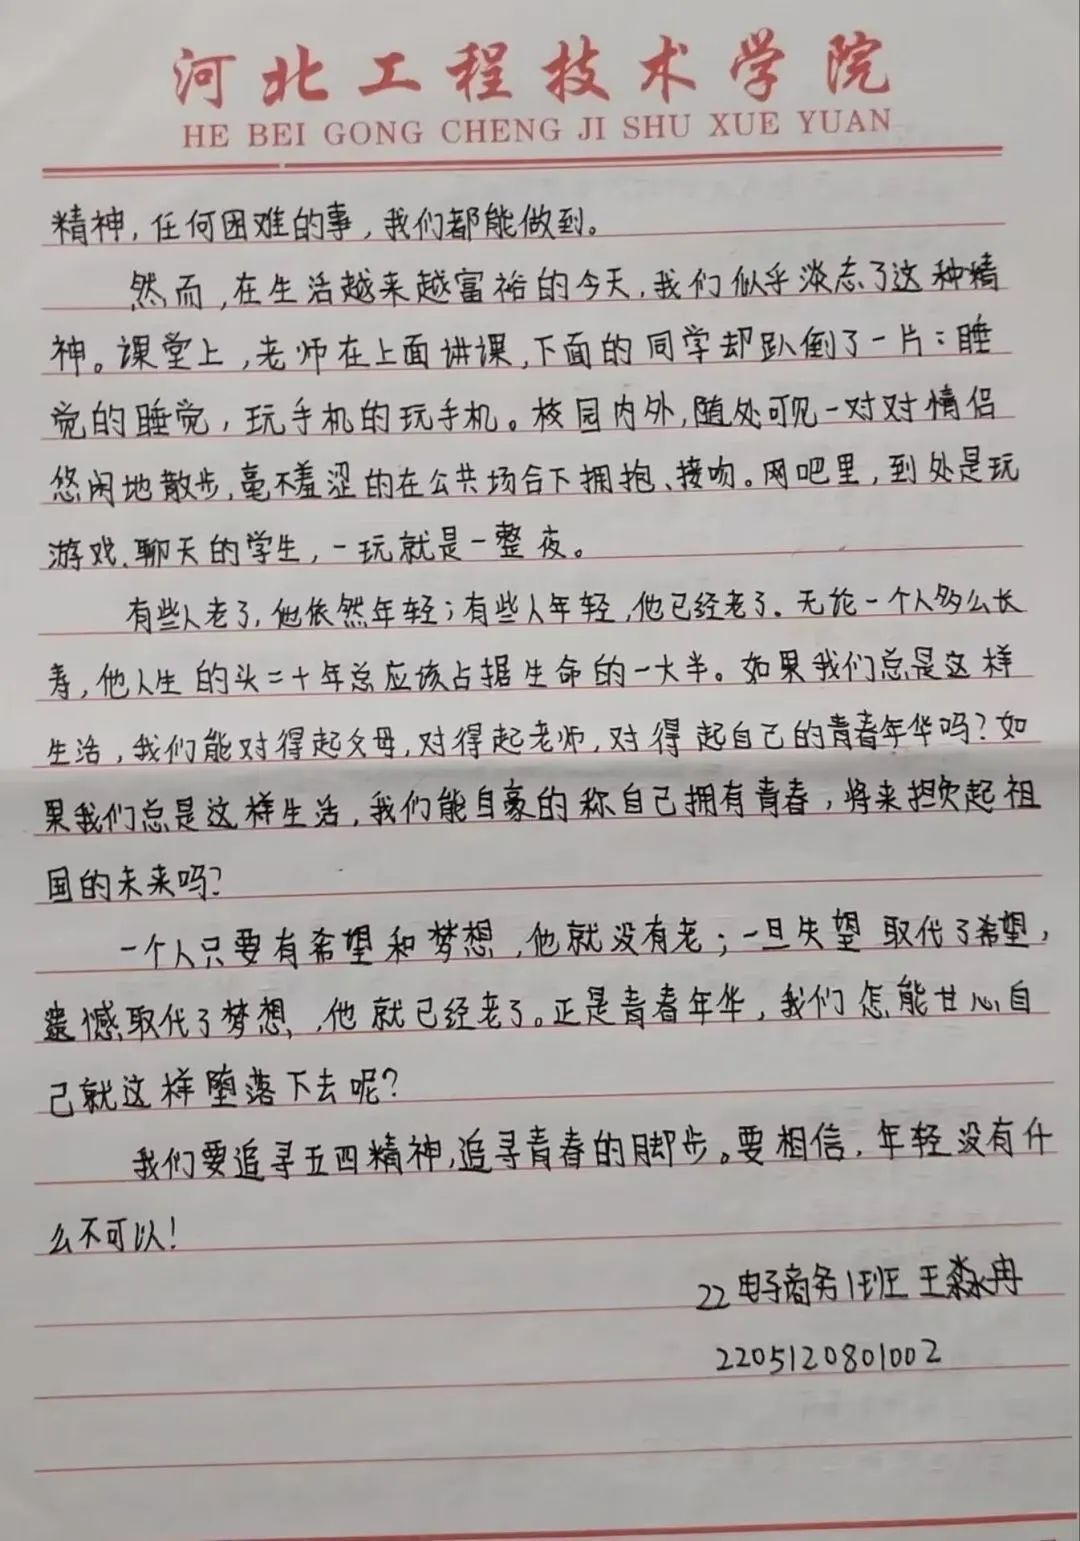 河北工程技术学院
HE BEI GONG CHENG JI SHU XUE YUAN
精神，任何困难的事，我们都能做到。
然而，在生活越来越富裕的今天，我们似乎淡忘了这种精
神。课堂上，老师在上面讲课，下面的同学却趴倒了一片：睡
觉的睡觉，玩手机的玩手机。校园内外，随处可见一对对情侣
悠闲地散步，毫不羞涩的在公共场合下拥抱、接吻。网吧里，到处是玩
游戏、聊天的学生，一玩就是一整夜。
有些人老了，他依然年轻；有些人年轻，他已经老了。无论一个人多么长
寿，他人生的头二十年总应该占据生命的一大半。如果我们总是这样
生活，我们能对得起父母，对得起老师，对得起自己的青春年华吗？如
果我们总是这样生活，我们能自豪的称自己拥有青春，将来担负起祖
国的未来吗？
一个人只要有希望和梦想，他就没有老；一旦失望取代了希望，
遗憾取代了梦想，他就已经老了。正是青春年华，我们怎能甘心自
己就这样堕落下去呢？
我们要追寻五四精神，追寻青春的脚步。要相信，年轻没有什
么不可以！
22电子商务1班 王淼冉
2205120801002